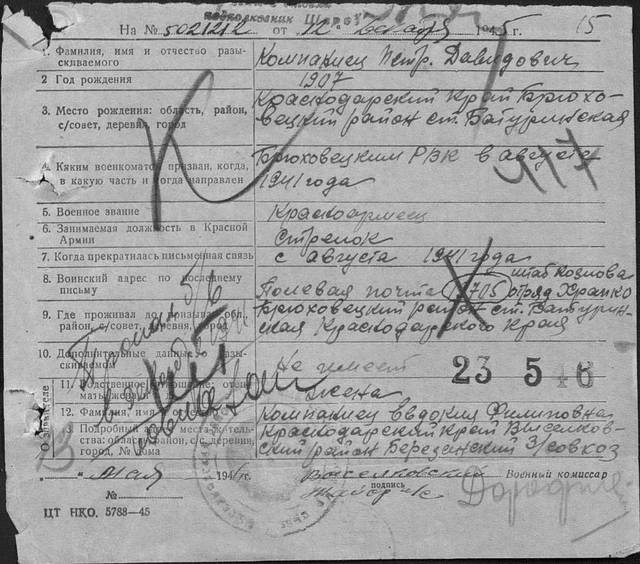 подполковник
На № 5021212 от 12 декабря 1945г. 15
1. Фамилия, имя и отчество разыскиваемого
Компаниец Петр. Давидович
2 Год рождения
1907
3. Место рождения: область, район, с/совет, деревня, город
Краснодарский край Брюхо-
вецкий район ст. Батуринская
4. Каким военкоматом призван, когда, в какую часть и когда направлен
Брюховецким РВК в августе
1941 года
К
5. Военное звание
Красноармеец
6. Занимаемая должность в Красной Армии
Стрелок
7. Когда прекратилась письменная связь
с августа 1941 года
8. Воинский адрес по последнему письму
штаб Козлова
Полевая почта 705 отряд
9. Где проживал до призыва: обл., район, с/совет, деревня, город
Брюховецкий район ст. Батурин-
ская Краснодарского Края
10. Дополнительные данные о разыскиваемом
Не имеет
23 5 46
жена
12. Фамилия, имя
Компаниец Евдокия Филиповна
тельства: область, район, с/с, деревня, город, № дома
Краснодарский край Выселков-
ский район Березанский З/совхоз
О заявителе
" " Май 194 г.
Выселковский Военный комиссар
подпись
№
ЦТ НКО. 5788—45